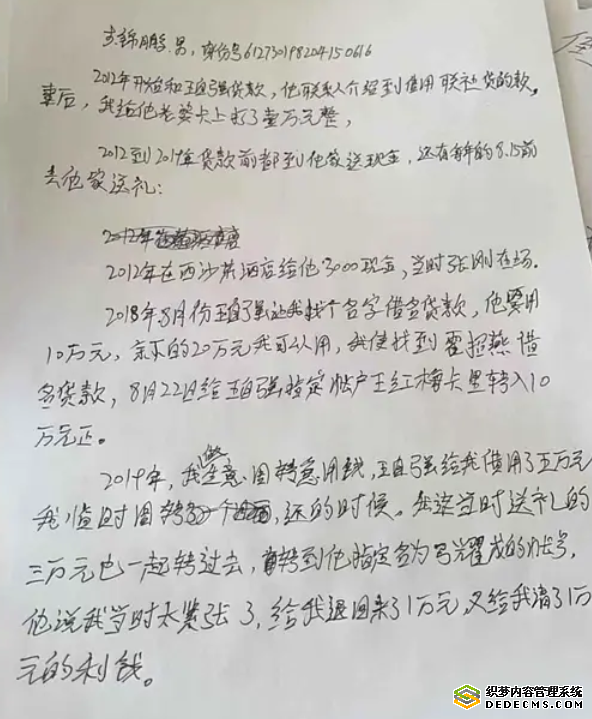 李锦鹏. 男, 身份号612730198204150616
2012年开始和王自强贷款, 他联系人介绍到信用联社贷的款,
事后, 我给他老婆卡上打了壹万元整,
2012到2019年贷款前都到他家送现金, 还有每年的8.15前
去他家送礼:
2012年在西沙 酒店给他3000现金, 当时张刚在场.
2018年8月份王自强让我找个名字借名贷款, 他要用
10万元, 余下的20万元我可以用, 我便找到霍招燕借
名贷款, 8月22日给王自强指定账户王红梅卡里转入10
万元正。
2019年, 我做生意周转急用钱, 王自强给我借用了五万元
我临时周转 , 还的时候。我连当时送礼的
三万元也一起转过去, 转到他指定名为 耀成的账号,
他说我当时太紧张了, 给我退回来了1万元, 又给我清了1万
元的利钱。
织梦内容管理系统
DEDECMS.COM